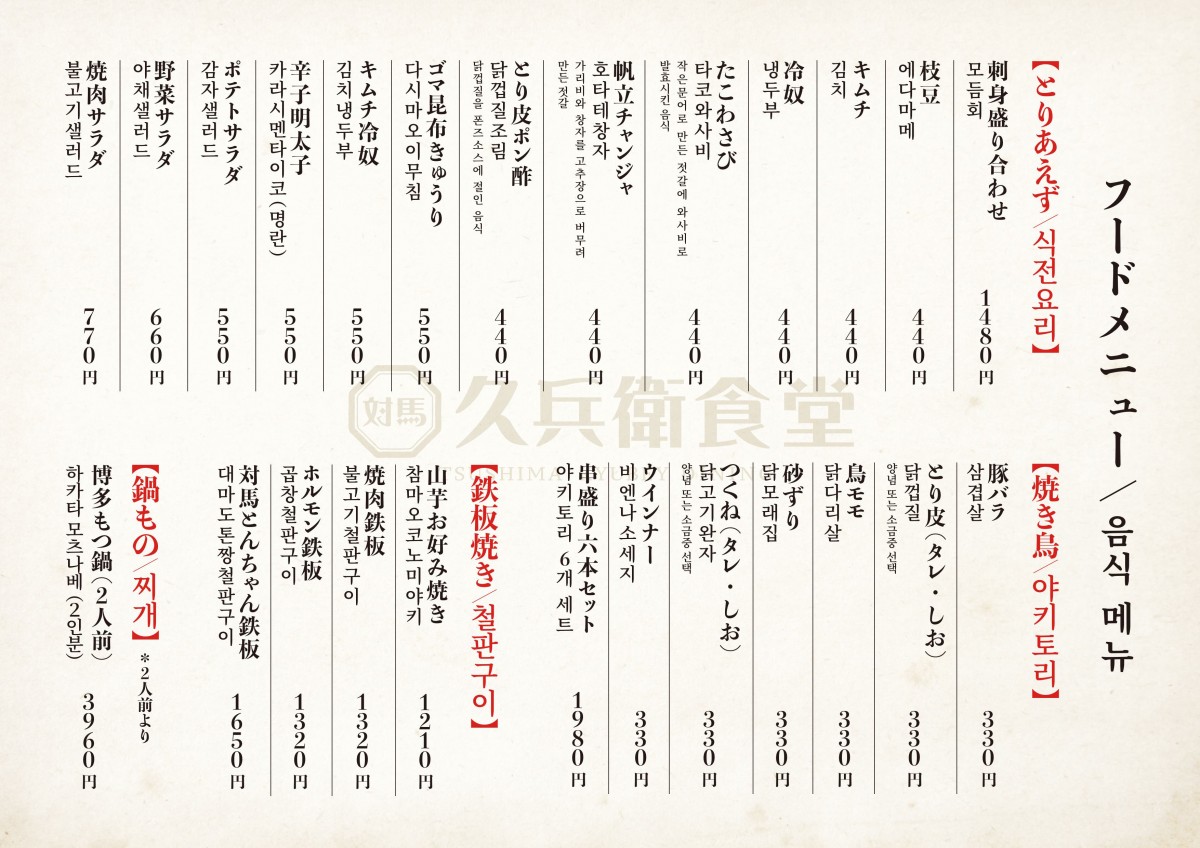 フードメニュー／음식 메뉴
【とりあえず／식전요리】
刺身盛り合わせ
모듬회
1480円
枝豆
에다마메
440円
キムチ
김치
440円
冷奴
냉두부
440円
たこわさび
타코와사비
작은문어로 만든 젓갈에 와사비로
발효시킨 음식
440円
帆立チャンジャ
호타테창자
가리비와 창자를 고추장으로 버무려
만든 젓갈
440円
とり皮ポン酢
닭껍질조림
닭껍질을 폰즈소스에 절인 음식
440円
ゴマ昆布きゅうり
다시마오이무침
550円
キムチ冷奴
김치냉두부
550円
辛子明太子
카라시멘타이코(명란)
550円
ポテトサラダ
감자샐러드
550円
野菜サラダ
야채샐러드
660円
焼肉サラダ
불고기샐러드
770円
【焼き鳥／야키토리】
豚バラ
삼겹살
330円
とり皮（タレ・しお）
닭껍질
양념 또는 소금중 선택
330円
鳥モモ
닭다리살
330円
砂ずり
닭모래집
330円
つくね（タレ・しお）
닭고기완자
양념 또는 소금중 선택
330円
ウインナー
비엔나소세지
330円
串盛り六本セット
야키토리 6개 세트
1980円
【鉄板焼き／철판구이】
山芋お好み焼き
참마오코노미야키
1210円
焼肉鉄板
불고기철판구이
1320円
ホルモン鉄板
곱창철판구이
1320円
対馬とんちゃん鉄板
대마도톤짱철판구이
1650円
【鍋もの／찌개】＊2人前より
博多もつ鍋（2人前）
하카타 모츠나베(2인분)
3960円
対馬
久兵衛食堂